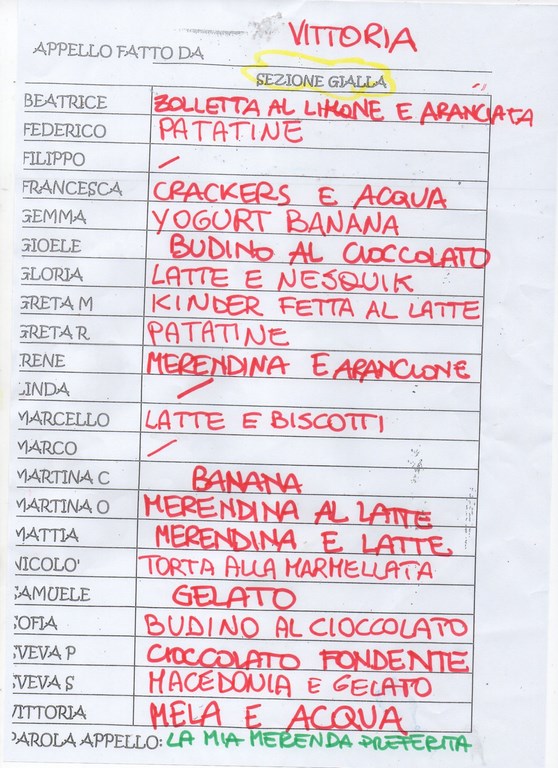 APPELLO FATTO DA VITTORIA
SEZIONE GIALLA
BEATRICE ZOLLETTA AL LIMONE E ARANCIATA
FEDERICO PATATINE
FILIPPO /
FRANCESCA CRACKERS E ACQUA
GEMMA YOGURT BANANA
GIOELE BUDINO AL CIOCCOLATO
GLORIA LATTE E NESQUIK
GRETA M KINDER FETTA AL LATTE
GRETA R PATATINE
IRENE MERENDINA E ARANCIONE
LINDA /
MARCELLO LATTE E BISCOTTI
MARCO /
MARTINA C BANANA
MARTINA O MERENDINA AL LATTE
MATTIA MERENDINA E LATTE
NICOLO' TORTA ALLA MARMELLATA
SAMUELE GELATO
SOFIA BUDINO AL CIOCCOLATO
SVEVA P CIOCCOLATO FONDENTE
SVEVA S MACEDONIA E GELATO
VITTORIA MELA E ACQUA
PAROLA APPELLO: LA MIA MERENDA PREFERITA